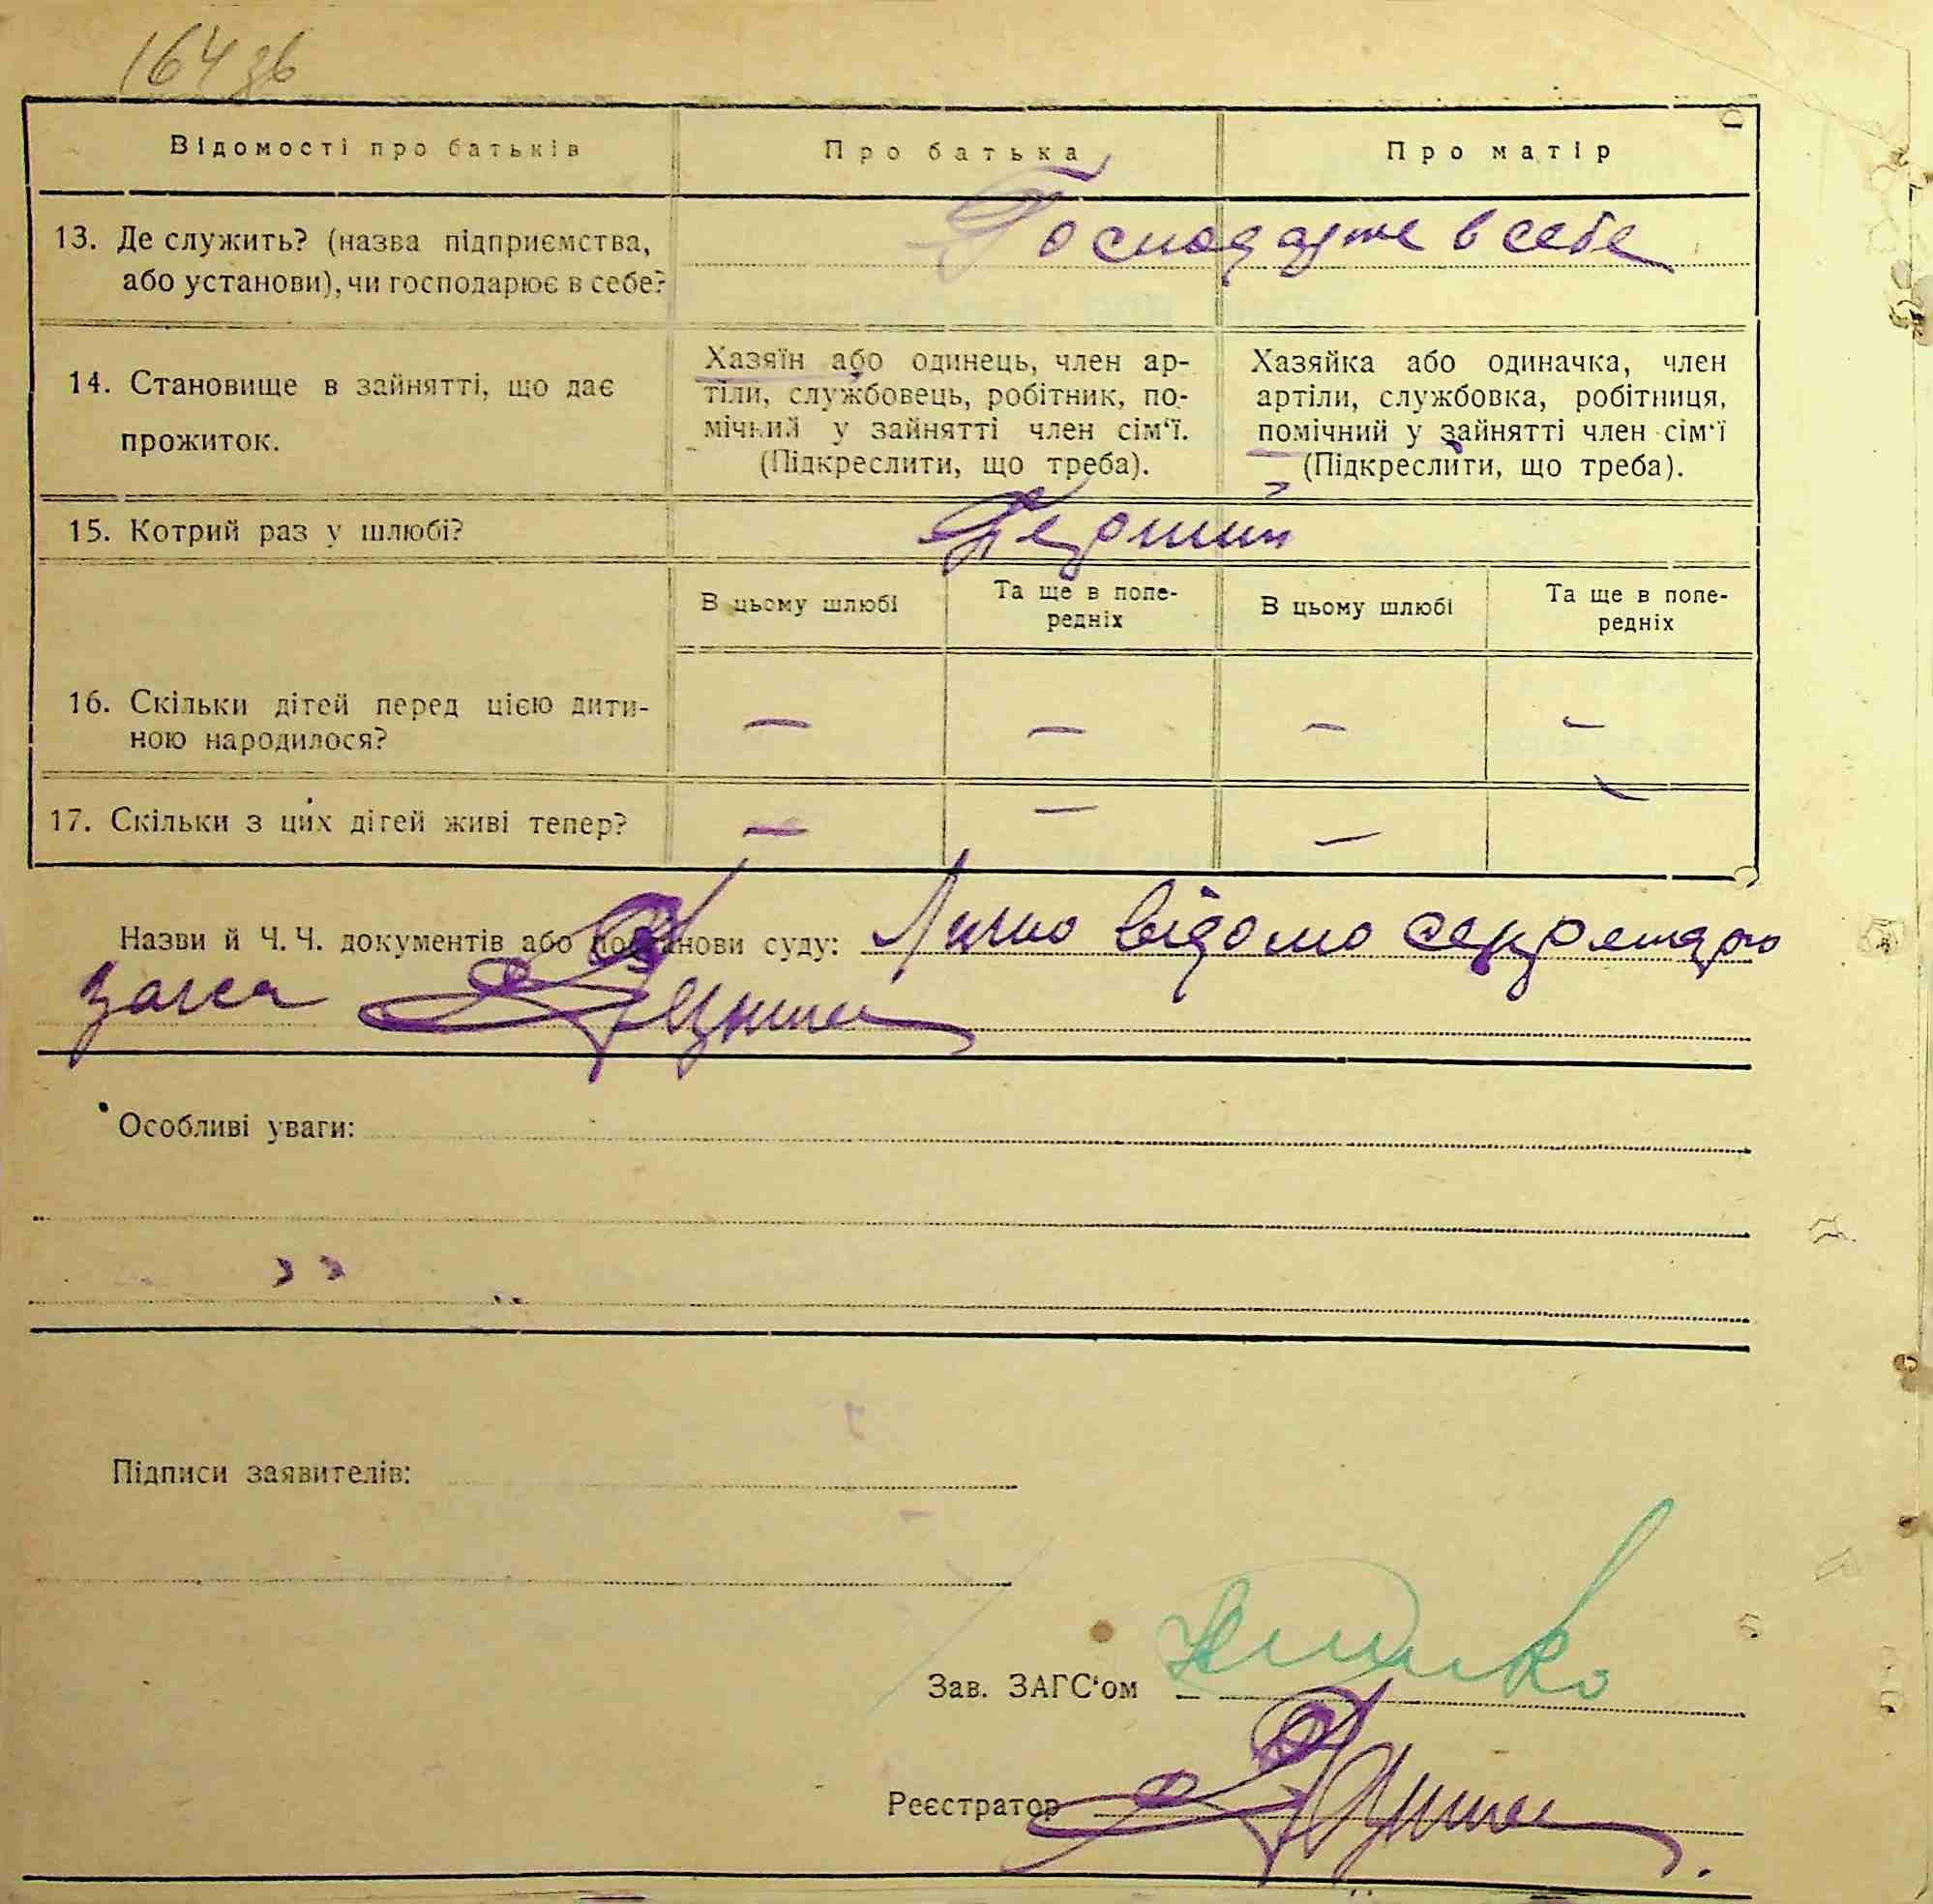 164 зв
Відомості про батьків
Про батька
Про матір
13. Де служить? (назва підприємства,
або установи), чи господарює в себе?
Господарже в себе
14. Становище в зайнятті, що дає
прожиток.
Хазяїн або одинець, член ар-
тіли, службовець, робітник, по-
мічний у зайнятті член сім'ї.
(Підкреслити, що треба).
Хазяйка або одиначка, член
артіли, службовка, робітниця,
помічний у зайнятті член сім'ї
(Підкреслити, що треба).
15. Котрий раз у шлюбі?
Перший
В цьому шлюбі
Та ще в попе-
редніх
В цьому шлюбі
Та ще в попе-
редніх
16. Скільки дітей перед цією дити-
ною народилося?
— — — —
17. Скільки з цих дітей живі тепер?
— — — —
Назви й Ч. Ч. документів або постанови суду: Лично відомо секретарю
загса
Особливі уваги:
Підписи заявителів:
Зав. ЗАГС'ом
Реєстратор